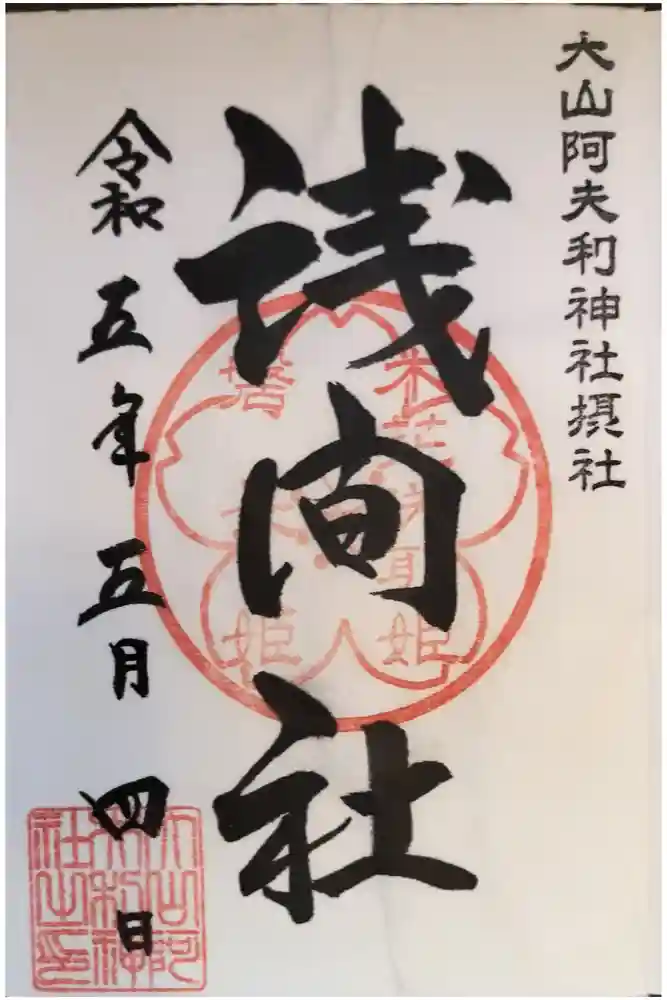 大山阿夫利神社摂社
浅間社
木花咲耶姫
磐長姫
令和五年五月四日
大山阿
夫利神
社之印